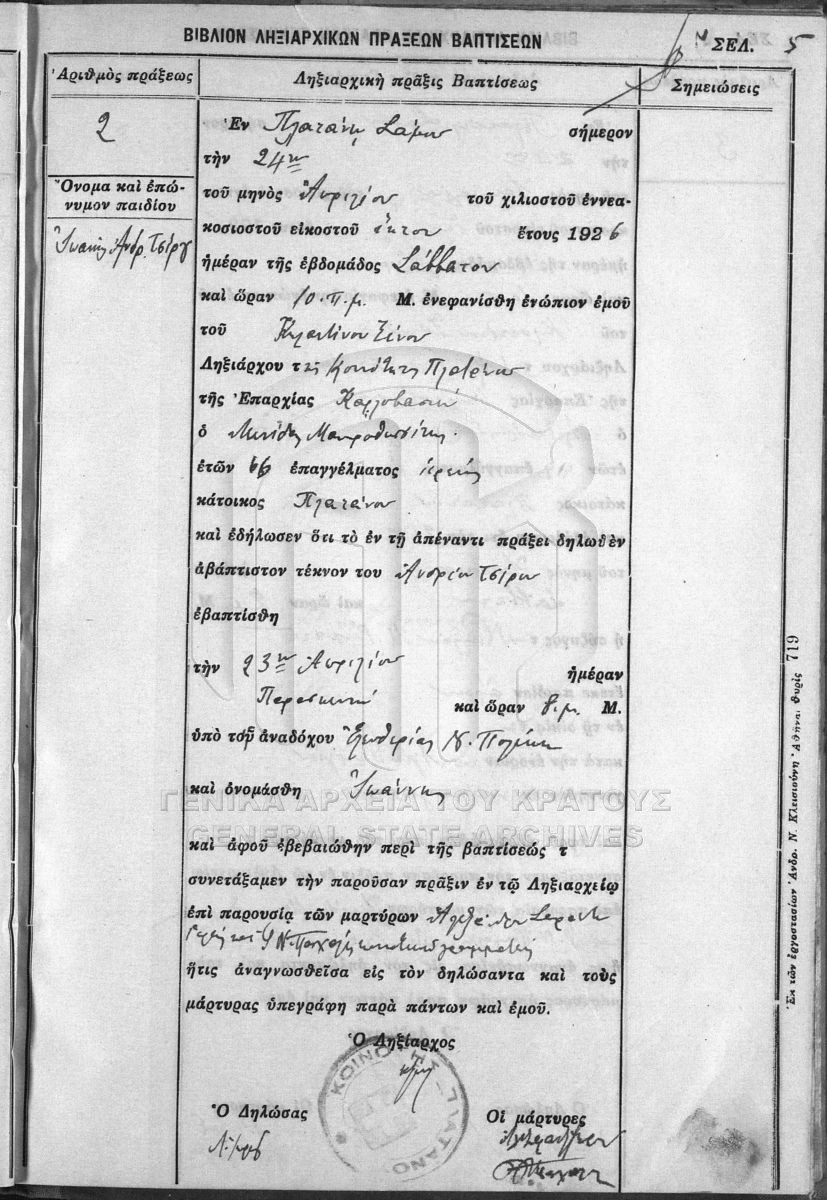 ΒΙΒΛΙΟΝ ΛΗΞΙΑΡΧΙΚΩΝ ΠΡΑΞΕΩΝ ΒΑΠΤΙΣΕΩΝ
ΣΕΛ. 5
Ἀριθμὸς πράξεως
Ληξιαρχικὴ πρᾶξις Βαπτίσεως
Σημειώσεις
2
Ὄνομα καὶ ἐπώ-
νυμον παιδίου
Ἰωάννης Ἀνδρ. Τσίρου
Ἐν Πλατάνῳ Σάμου σήμερον
τὴν 24ην
τοῦ μηνὸς Ἀπριλίου τοῦ χιλιοστοῦ ἐννεα-
κοσιοστοῦ εἰκοστοῦ ἕκτου ἔτους 1926
ἡμέραν τῆς ἑβδομάδος Σάββατον
καὶ ὥραν 10 π.μ. Μ. ἐνεφανίσθη ἐνώπιον ἐμοῦ
τοῦ
Ληξιάρχου τῆς Κοινότητος Πλατάνου
τῆς Ἐπαρχίας Καρλοβασίου
ὁ
ἐτῶν 66 ἐπαγγέλματος ἱερεὺς
κάτοικος Πλατάνου
καὶ ἐδήλωσεν ὅτι τὸ ἐν τῇ ἀπέναντι πράξει δηλωθὲν
ἀβάπτιστον τέκνον του Ἀνδρέου Τσίρου
ἐβαπτίσθη
τὴν 23ην Ἀπριλίου ἡμέραν
Παρασκευὴ καὶ ὥραν Μ.
ὑπὸ τοῦ ἀναδόχου Ἐλευθερίας Ν.
καὶ ὀνομάσθη Ἰωάννης
ΓΕΝΙΚΑ ΑΡΧΕΙΑ ΤΟΥ ΚΡΑΤΟΥΣ
GENERAL STATE ARCHIVES
καὶ ἀφοῦ ἐβεβαιώθην περὶ τῆς βαπτίσεώς τ
συνετάξαμεν τὴν παροῦσαν πρᾶξιν ἐν τῷ Ληξιαρχείῳ
ἐπὶ παρουσίᾳ τῶν μαρτύρων
ἥτις ἀναγνωσθεῖσα εἰς τὸν δηλώσαντα καὶ τοὺς
μάρτυρας ὑπεγράφη παρὰ πάντων καὶ ἐμοῦ.
Ὁ Ληξίαρχος
ΚΟΙΝΟΤΗΣ ΠΛΑΤΑΝΟΥ
Ὁ Δηλώσας
Οἱ μάρτυρες
Ἐκ τῶν ἐργοστασίων Ἀνδρ. Ν. Κλεισιούνη Ἀθῆναι, θυρὶς 719